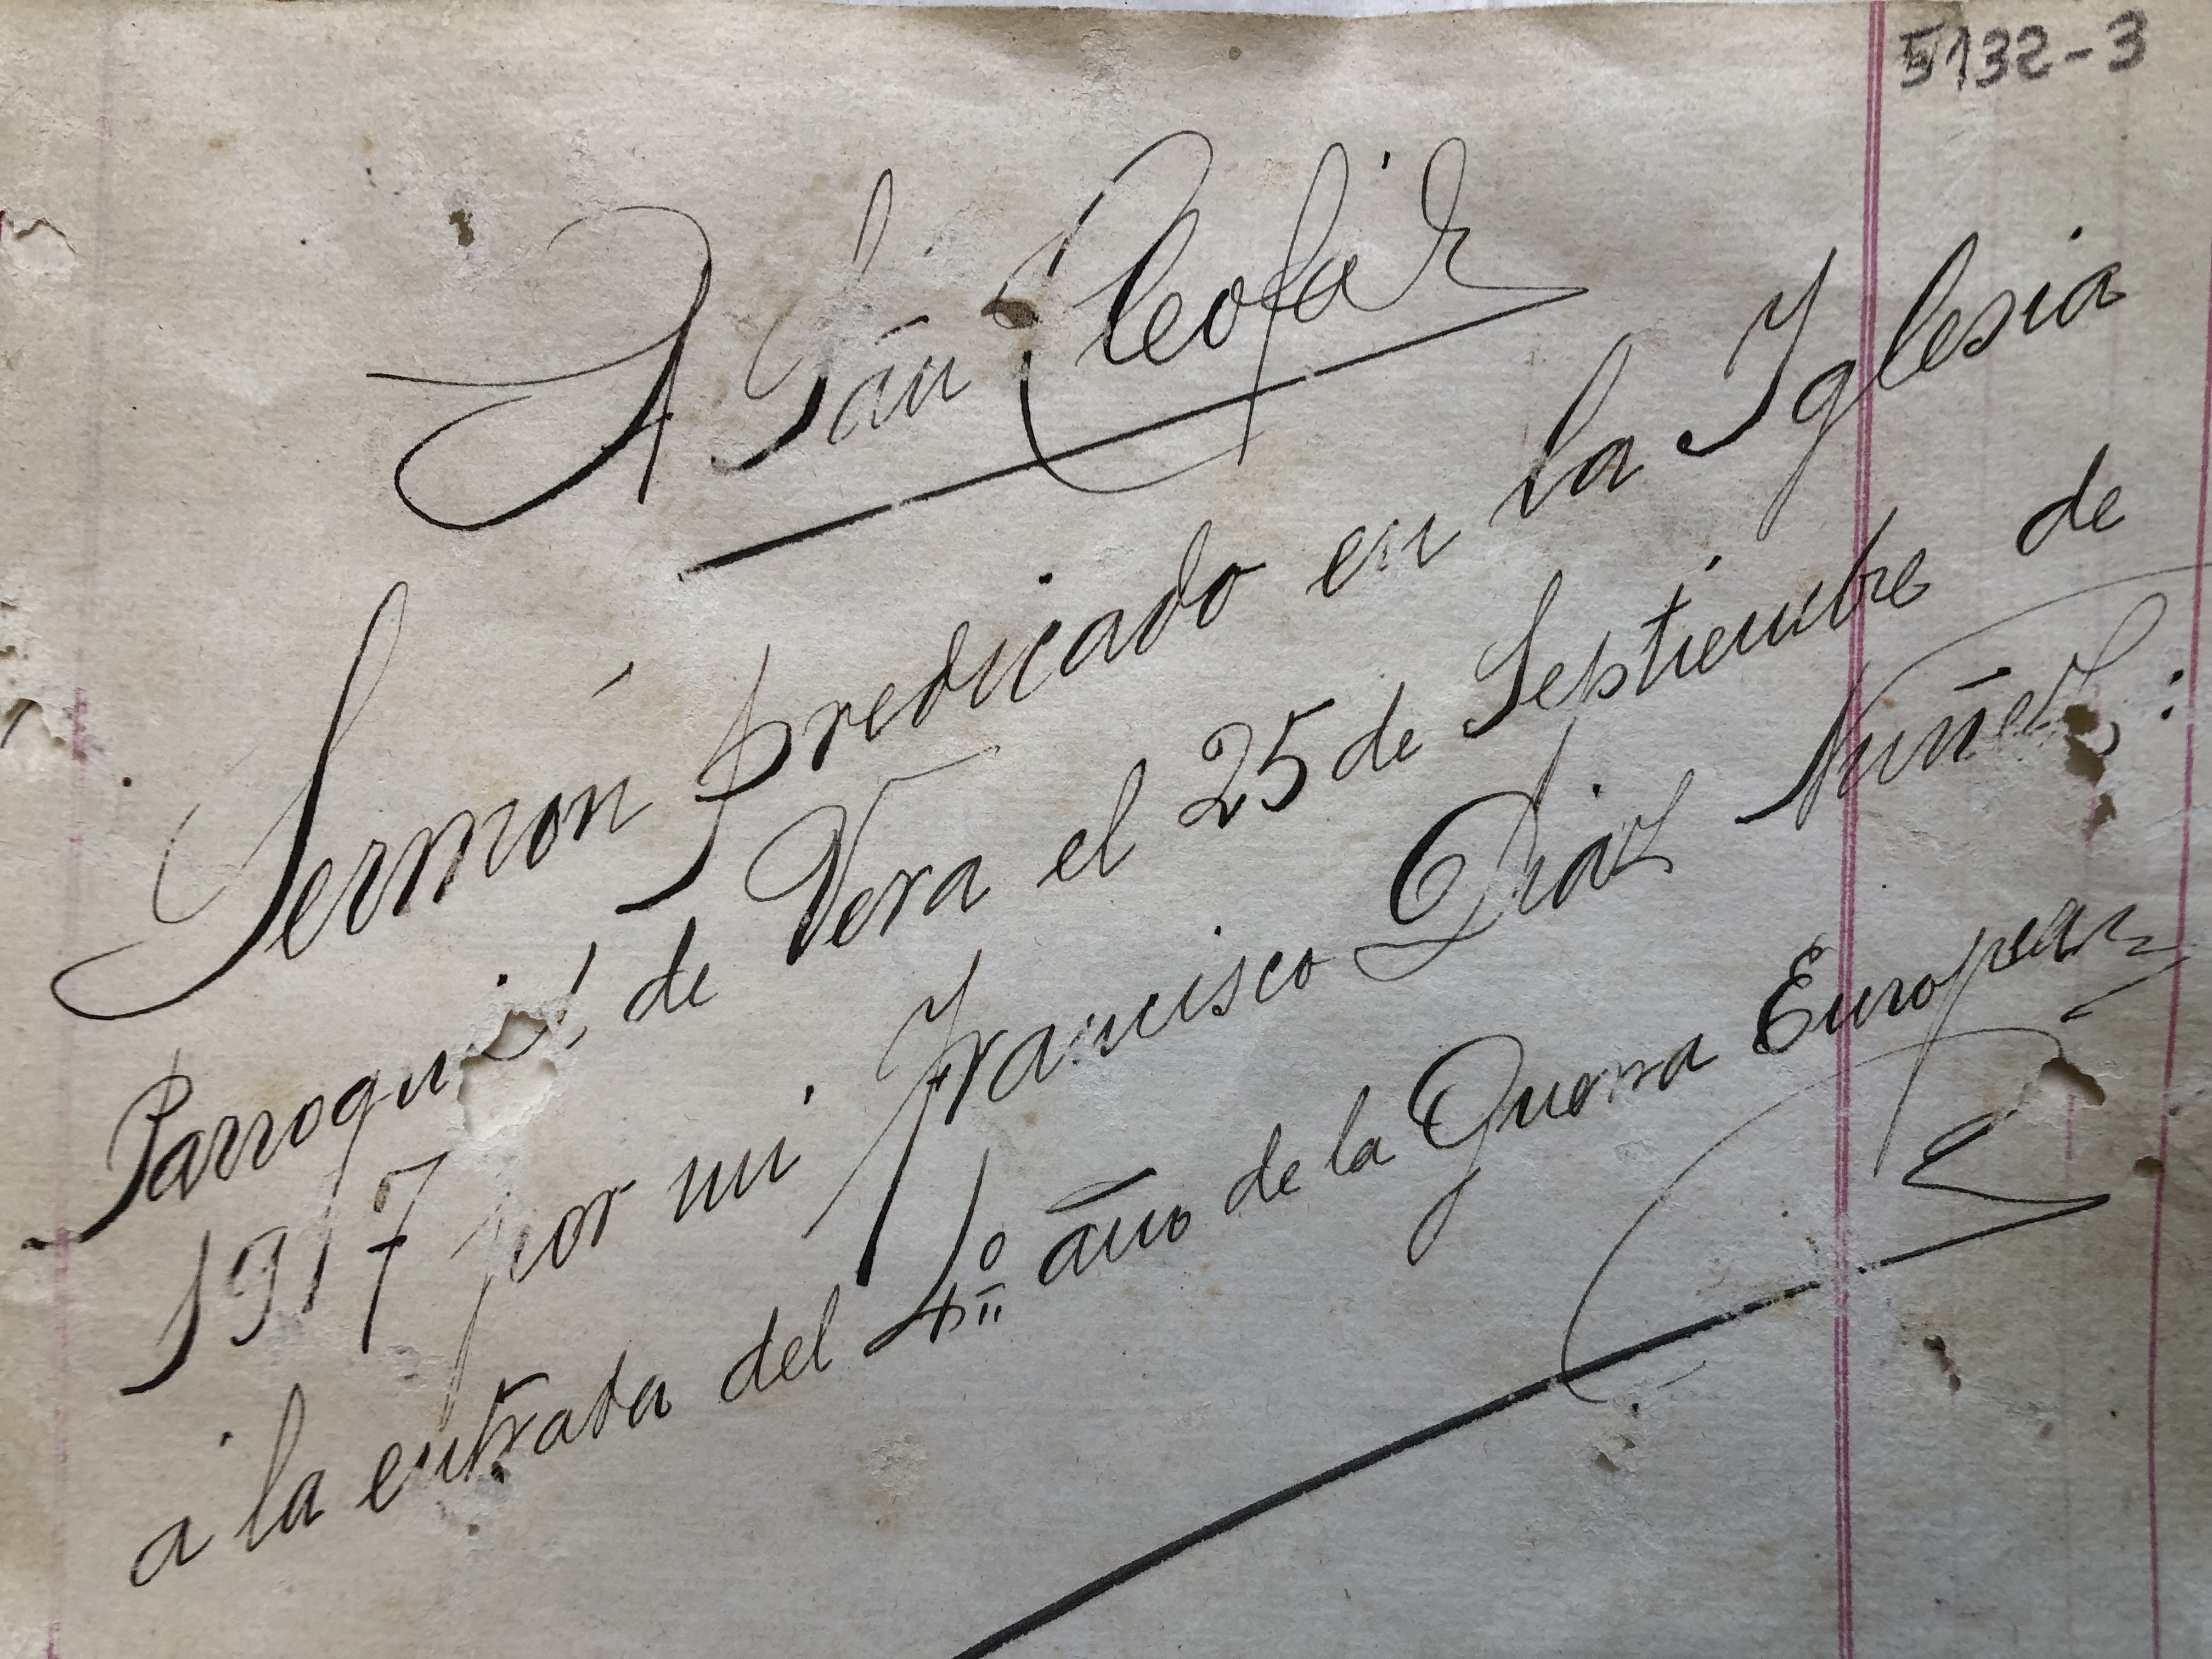 5132-3
A San Cleofás
Sermón predicado en la Iglesia
Parroquial de Vera el 25 de Septiembre de
1917 por mi Francisco Diaz Nuñez:
a la entrada del 4º año de la Guerra Europea